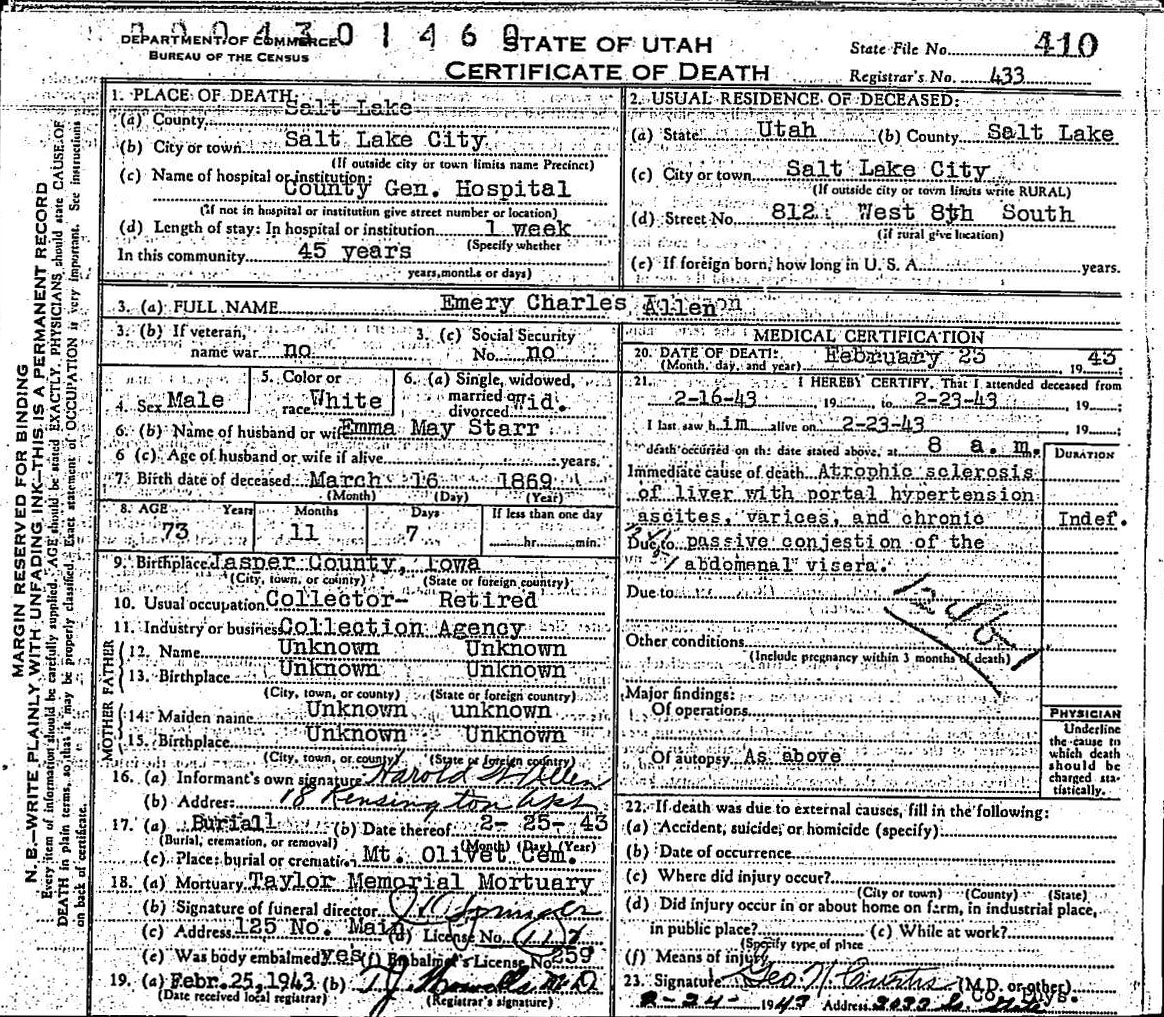 0 0 0 4 3 0 1 4 6 0
DEPARTMENT OF COMMERCE
BUREAU OF THE CENSUS
STATE OF UTAH
CERTIFICATE OF DEATH
State File No. 410
Registrar's No. 433
MARGIN RESERVED FOR BINDING
N. B.—WRITE PLAINLY, WITH UNFADING INK—THIS IS A PERMANENT RECORD
Every item of information should be carefully supplied. AGE should be stated EXACTLY. PHYSICIANS should state CAUSE OF
DEATH in plain terms, so that it may be properly classified. Exact statement of OCCUPATION is very important. See instructions
on back of certificate.
1. PLACE OF DEATH:
(a) County Salt Lake
(b) City or town Salt Lake City
(If outside city or town limits name Precinct)
(c) Name of hospital or institution:
County Gen. Hospital
(If not in hospital or institution give street number or location)
(d) Length of stay: In hospital or institution 1 week
(Specify whether
In this community 45 years
years, months or days)
2. USUAL RESIDENCE OF DECEASED:
(a) State Utah (b) County Salt Lake
(c) City or town Salt Lake City
(If outside city or town limits write RURAL)
(d) Street No. 812 West 8th South
(If rural give location)
(e) If foreign born, how long in U. S. A. years.
3. (a) FULL NAME Emery Charles Allen
3. (b) If veteran,
name war no
3. (c) Social Security
No. no
4. Sex Male
5. Color or
race White
6. (a) Single, widowed,
married or
divorced Wid.
6. (b) Name of husband or wife Emma May Starr
6 (c) Age of husband or wife if alive years.
7. Birth date of deceased March 16 1869
(Month) (Day) (Year)
8. AGE Years Months Days If less than one day
73 11 7 hr. min.
9. Birthplace Jasper County, Iowa
(City, town, or county) (State or foreign country)
10. Usual occupation Collector- Retired
11. Industry or business Collection Agency
FATHER
12. Name Unknown Unknown
13. Birthplace Unknown Unknown
(City, town, or county) (State or foreign country)
MOTHER
14. Maiden name Unknown unknown
15. Birthplace Unknown Unknown
(City, town, or county) (State or foreign country)
16. (a) Informant's own signature Harold Allen
(b) Address 18 Kensington Apt
17. (a) Buriall (b) Date thereof 2- 25- 43
(Burial, cremation, or removal) (Month) (Day) (Year)
(c) Place: burial or cremation Mt. Olivet Cem.
18. (a) Mortuary Taylor Memorial Mortuary
(b) Signature of funeral director
(c) Address 125 No. Main (d) License No. 117
(e) Was body embalmed yes (f) Embalmer's License No. 259
19. (a) Febr. 25, 1943 (b) T. J. Howells M.D.
(Date received local registrar) (Registrar's signature)
MEDICAL CERTIFICATION
20. DATE OF DEATH: February 23 19 43
(Month, day, and year)
21. I HEREBY CERTIFY, That I attended deceased from
2-16-43, 19 to 2-23-43, 19 ;
I last saw him alive on 2-23-43 , 19 ;
death occurred on the date stated above, at 8 a. m.
DURATION
Immediate cause of death Atrophic sclerosis
of liver with portal hypertension
ascites, varices, and chronic Indef.
Due to passive conjestion of the
abdomenal visera.
Due to
124b1
Other conditions
(Include pregnancy within 3 months of death)
Major findings:
Of operations
Of autopsy As above
PHYSICIAN
Underline
the cause to
which death
should be
charged sta-
tistically.
22. If death was due to external causes, fill in the following:
(a) Accident, suicide, or homicide (specify)
(b) Date of occurrence
(c) Where did injury occur?
(City or town) (County) (State)
(d) Did injury occur in or about home on farm, in industrial place,
in public place? (e) While at work?
(Specify type of place
(f) Means of injury
23. Signature Geo N Curtis (M.D. or other)
Co. Phys.
2-24- 1943 Address